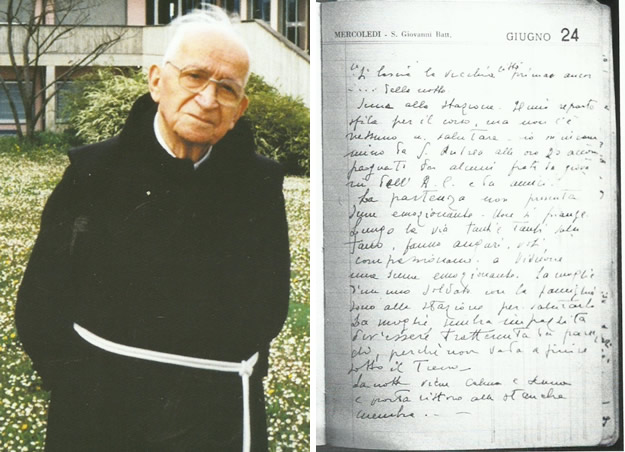 MERCOLEDÌ - S. Giovanni Batt. GIUGNO 24
"Si lascia la vecchia città prima ancor
.... della notte
alla stazione. Il mio reparto
sfila per il corso, ma non c'è
nessuno a salutare. io m'incam
mino da S. Andrea alle ore 20 accom
pagnato da alcuni frati da giova
ni dell' A. C. e da amici.
La partenza non presenta
scene emozionanti. Non si piange.
Lungo la via tanti e tanti salu
tano, fanno auguri,
compassionano. a Vidivione
una scena emozionante. La moglie
d'un mio soldato con la famiglia
sono alla stazione per salutarlo
La moglie sembra impazzita
dev'essere trattenuta da paren
ti, perchè non vada a finire
sotto il Treno.
La notte viene calma e
e porta ristoro alle stanche
membra. . —